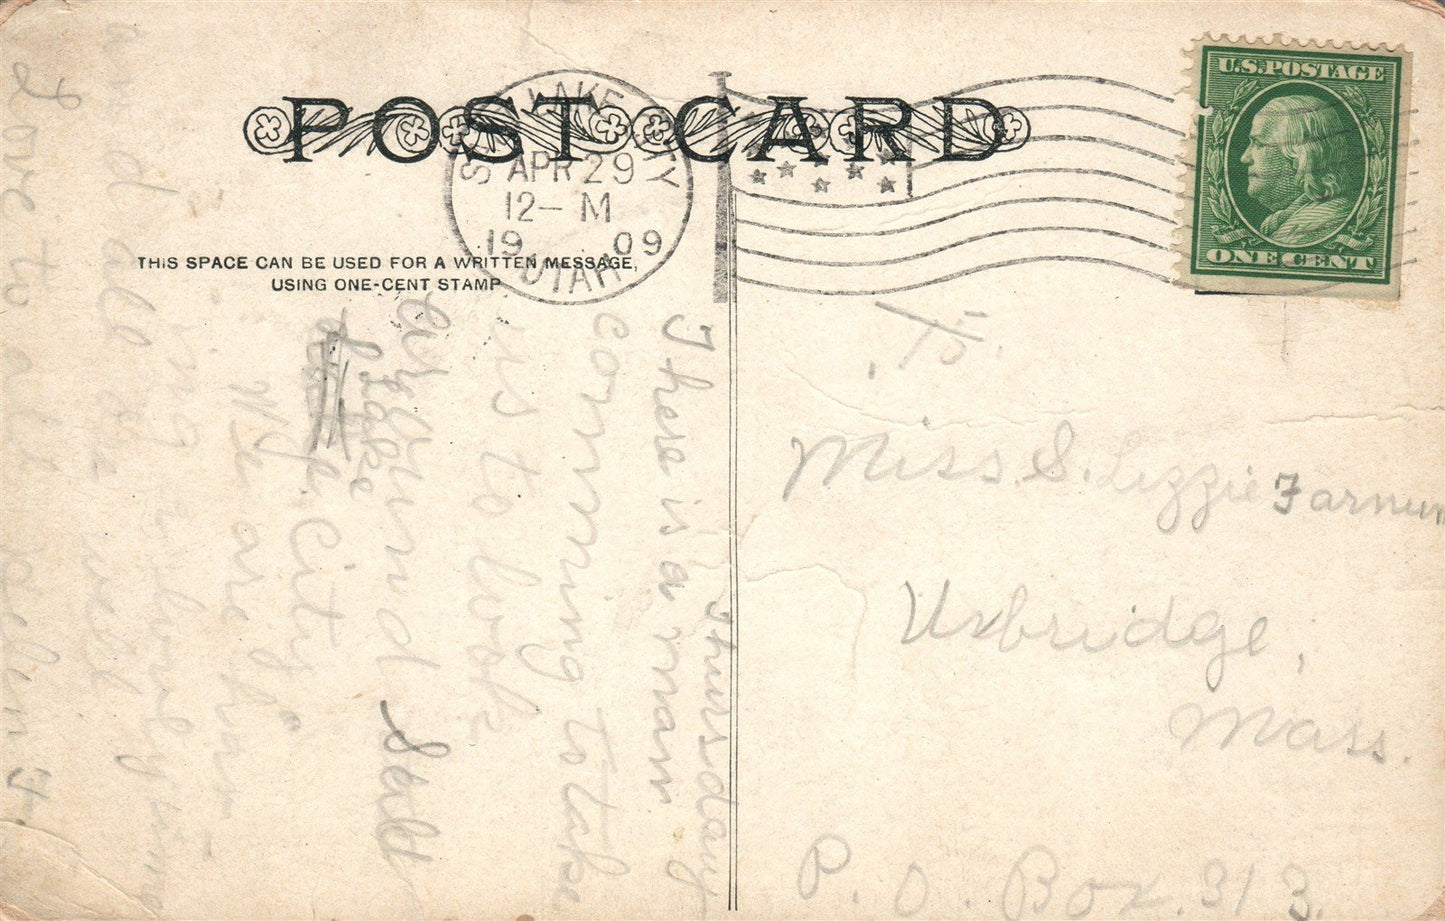 POST CARD
SALT LAKE CITY
APR 29
12- M
1909
UTAH
U.S. POSTAGE
ONE CENT
THIS SPACE CAN BE USED FOR A WRITTEN MESSAGE,
USING ONE-CENT STAMP
Miss. S. Lizzie Farnum
Uxbridge,
Mass.
P. O. Box. 313
Thursday
There is a man
comming to take
us to look
around Salt
Lake City
We are
Love to all